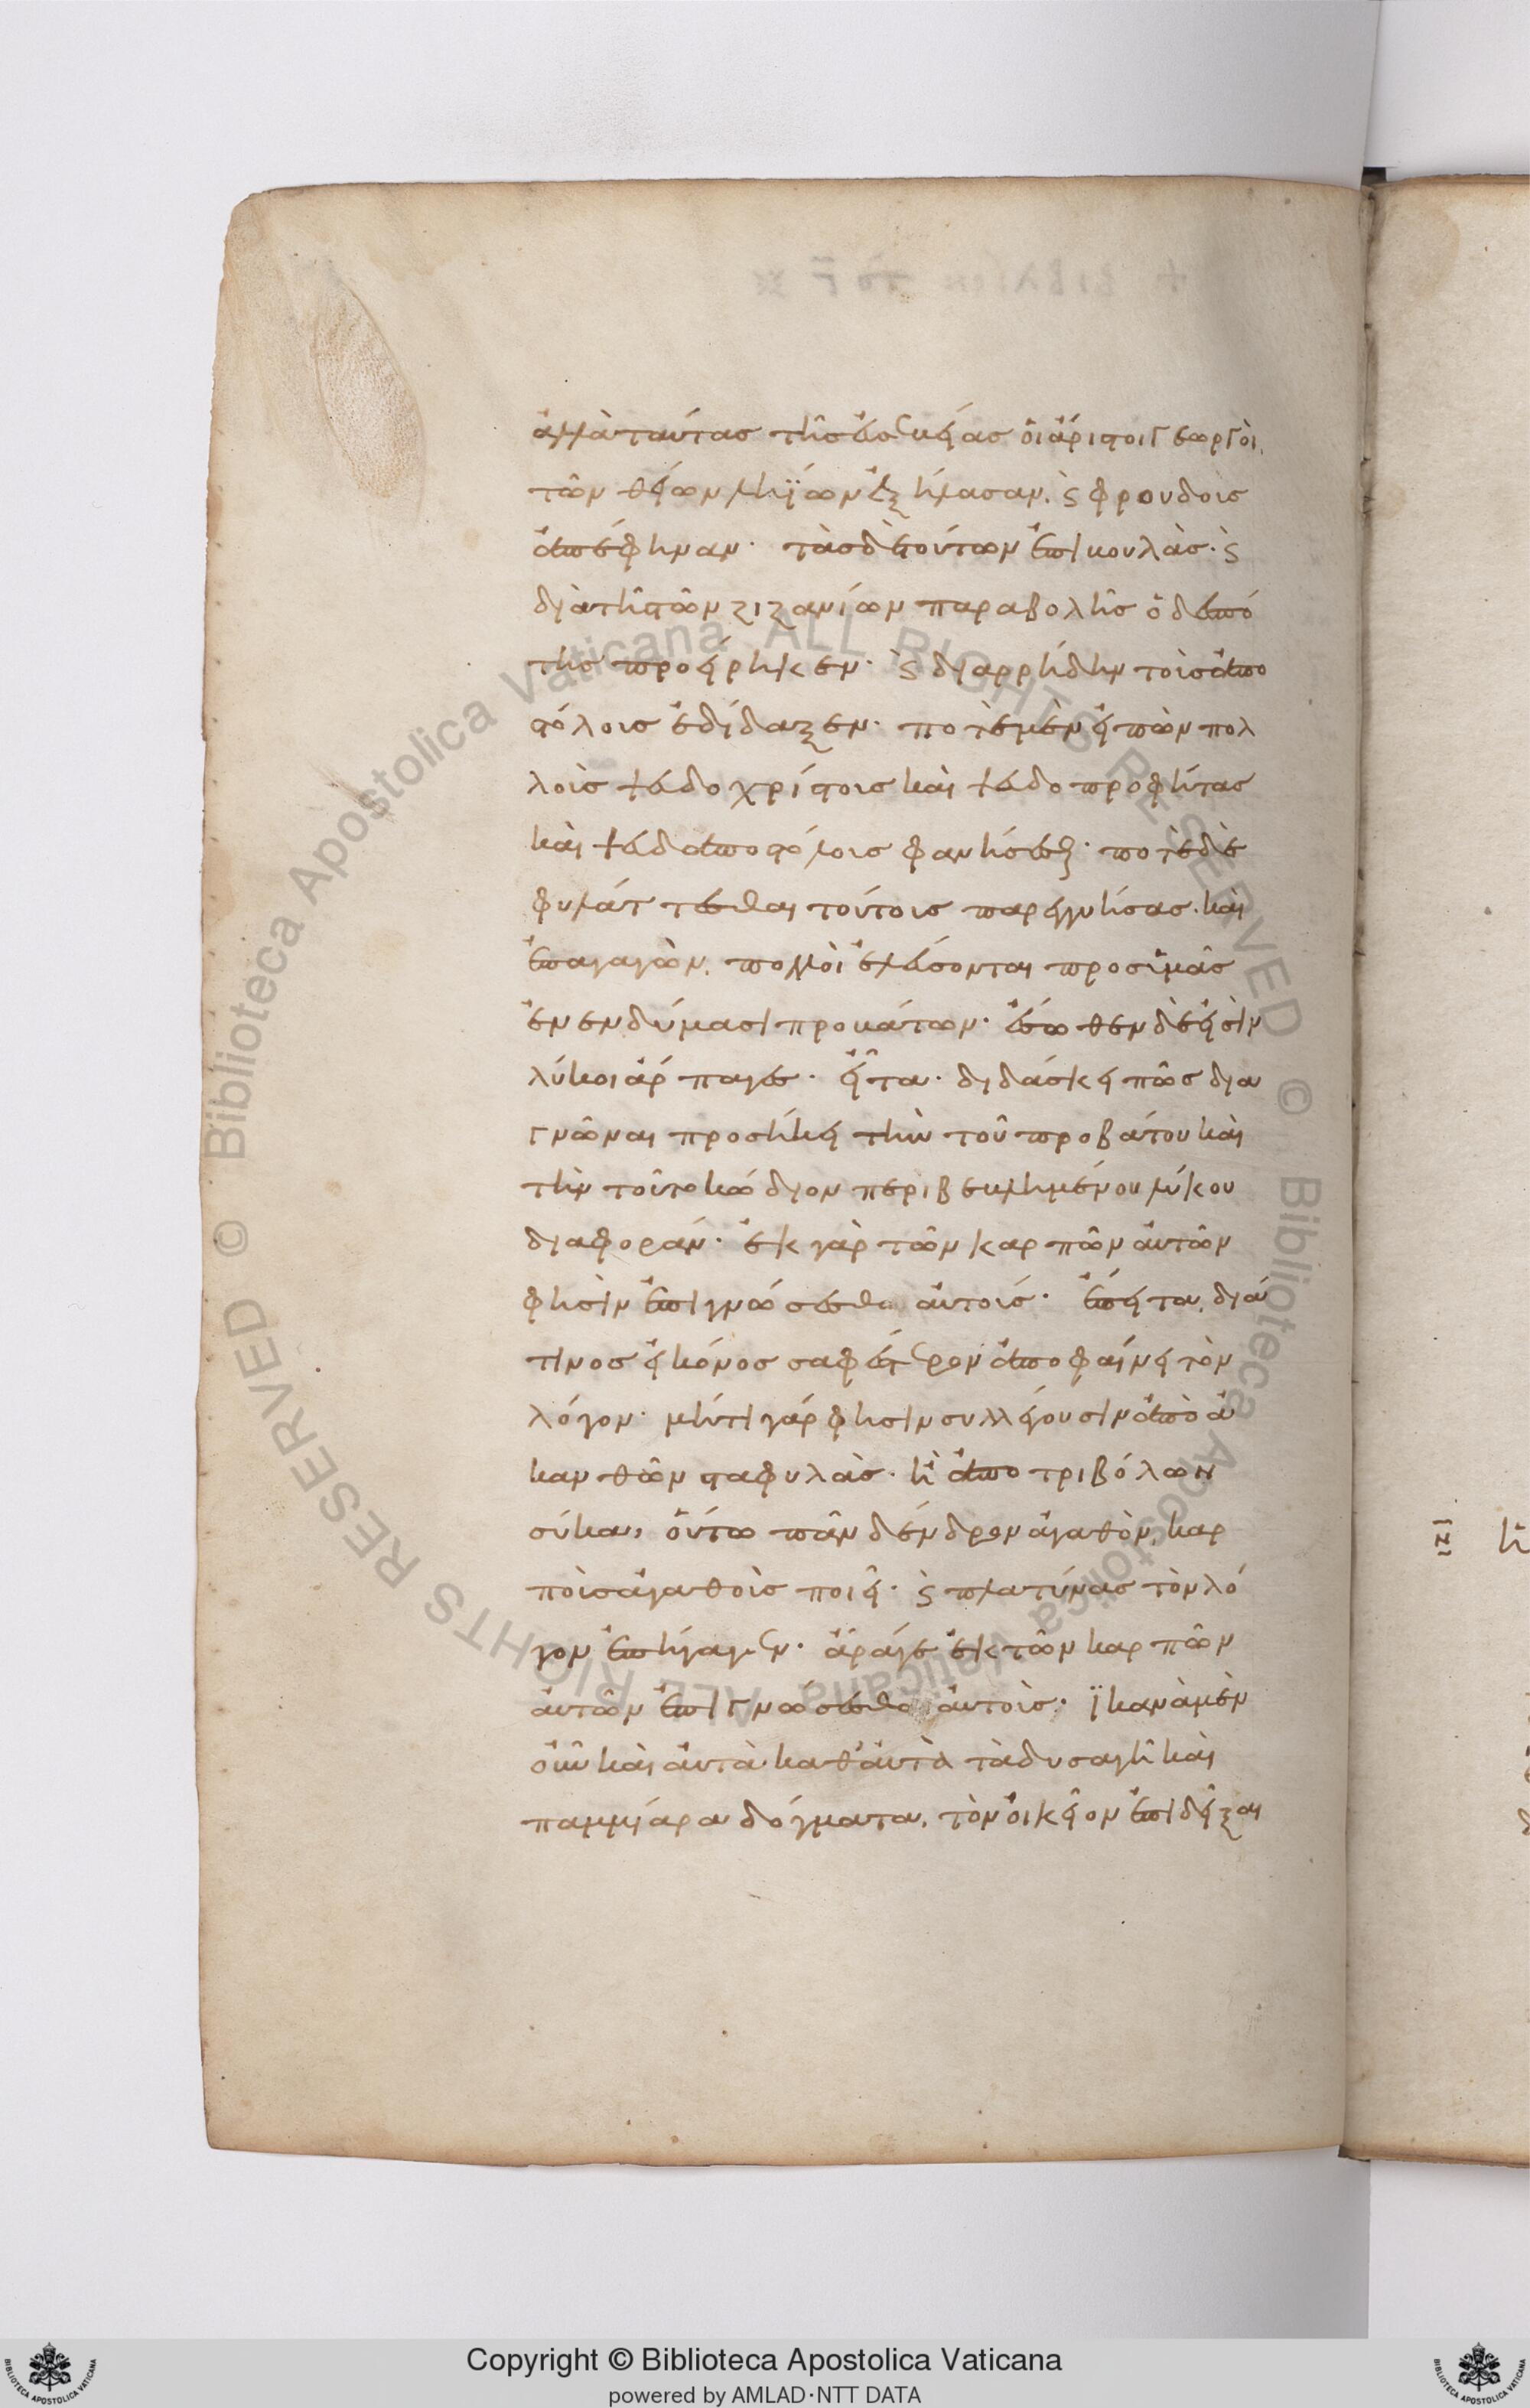 ἀλλὰ ταύτας τῆς εὐσεβείας οἱ ἄριστοι γεωργοὶ,
τῶν θείων ληΐων ἐξήλασαν, καὶ φρούδους
ἀπέφηναν· τὰς δὲ τούτων ἐπιβουλὰς· καὶ
διὰ τῆς τῶν ζιζανίων παραβολῆς ὁ δεσπό
της προείρηκεν· καὶ διαρρήδην τοὺς ἀπο
στόλους ἐδίδαξεν· ποτὲ μὲν εἰπὼν πολ
λοὺς ψευδοχρίστους καὶ ψευδοπροφήτας
καὶ ψευδαποστόλους φανήσεσθαι· ποτὲ δὲ
φυλάττεσθαι τούτους παρεγγυήσας· καὶ
ἐπαγαγὼν, πολλοὶ ἐλεύσονται πρὸς ὑμᾶς
ἐν ἐνδύμασι προβάτων· ἔσωθεν δέ εἰσιν
λύκοι ἅρπαγες· εἶτα διδάσκει πῶς δια
γνῶναι προσήκει τὴν τοῦ προβάτου καὶ
τὴν τοῦ τὸ κώδιον περιβεβλημένου λύκου
διαφοράν· ἐκ γὰρ τῶν καρπῶν αὐτῶν
φησὶν ἐπιγνώσεσθε αὐτούς· ἔπειτα, διά
τινος εἰκόνος σαφέστερον ἀποφαίνει τὸν
λόγον· μήτι γάρ φησιν συλλέγουσιν ἀπὸ ἀ
κανθῶν σταφυλὰς· ἢ ἀπὸ τριβόλων
σύκα, οὕτω πᾶν δένδρον ἀγαθὸν, καρ
ποὺς ἀγαθοὺς ποιεῖ· καὶ πλατύνας τὸν λό
γον ἐπήγαγεν· ἄραγε ἐκ τῶν καρπῶν
αὐτῶν ἐπιγνώσεσθε αὐτοὺς· ἱκανὰ μὲν
οὖν καὶ αὐτὰ καθ' αὑτὰ τὰ δυσαγῆ καὶ
παμμίαρα δόγματα, τὸν οἰκεῖον ἐπιδεῖξαι
Copyright © Biblioteca Apostolica Vaticana
powered by AMLAD·NTT DATA